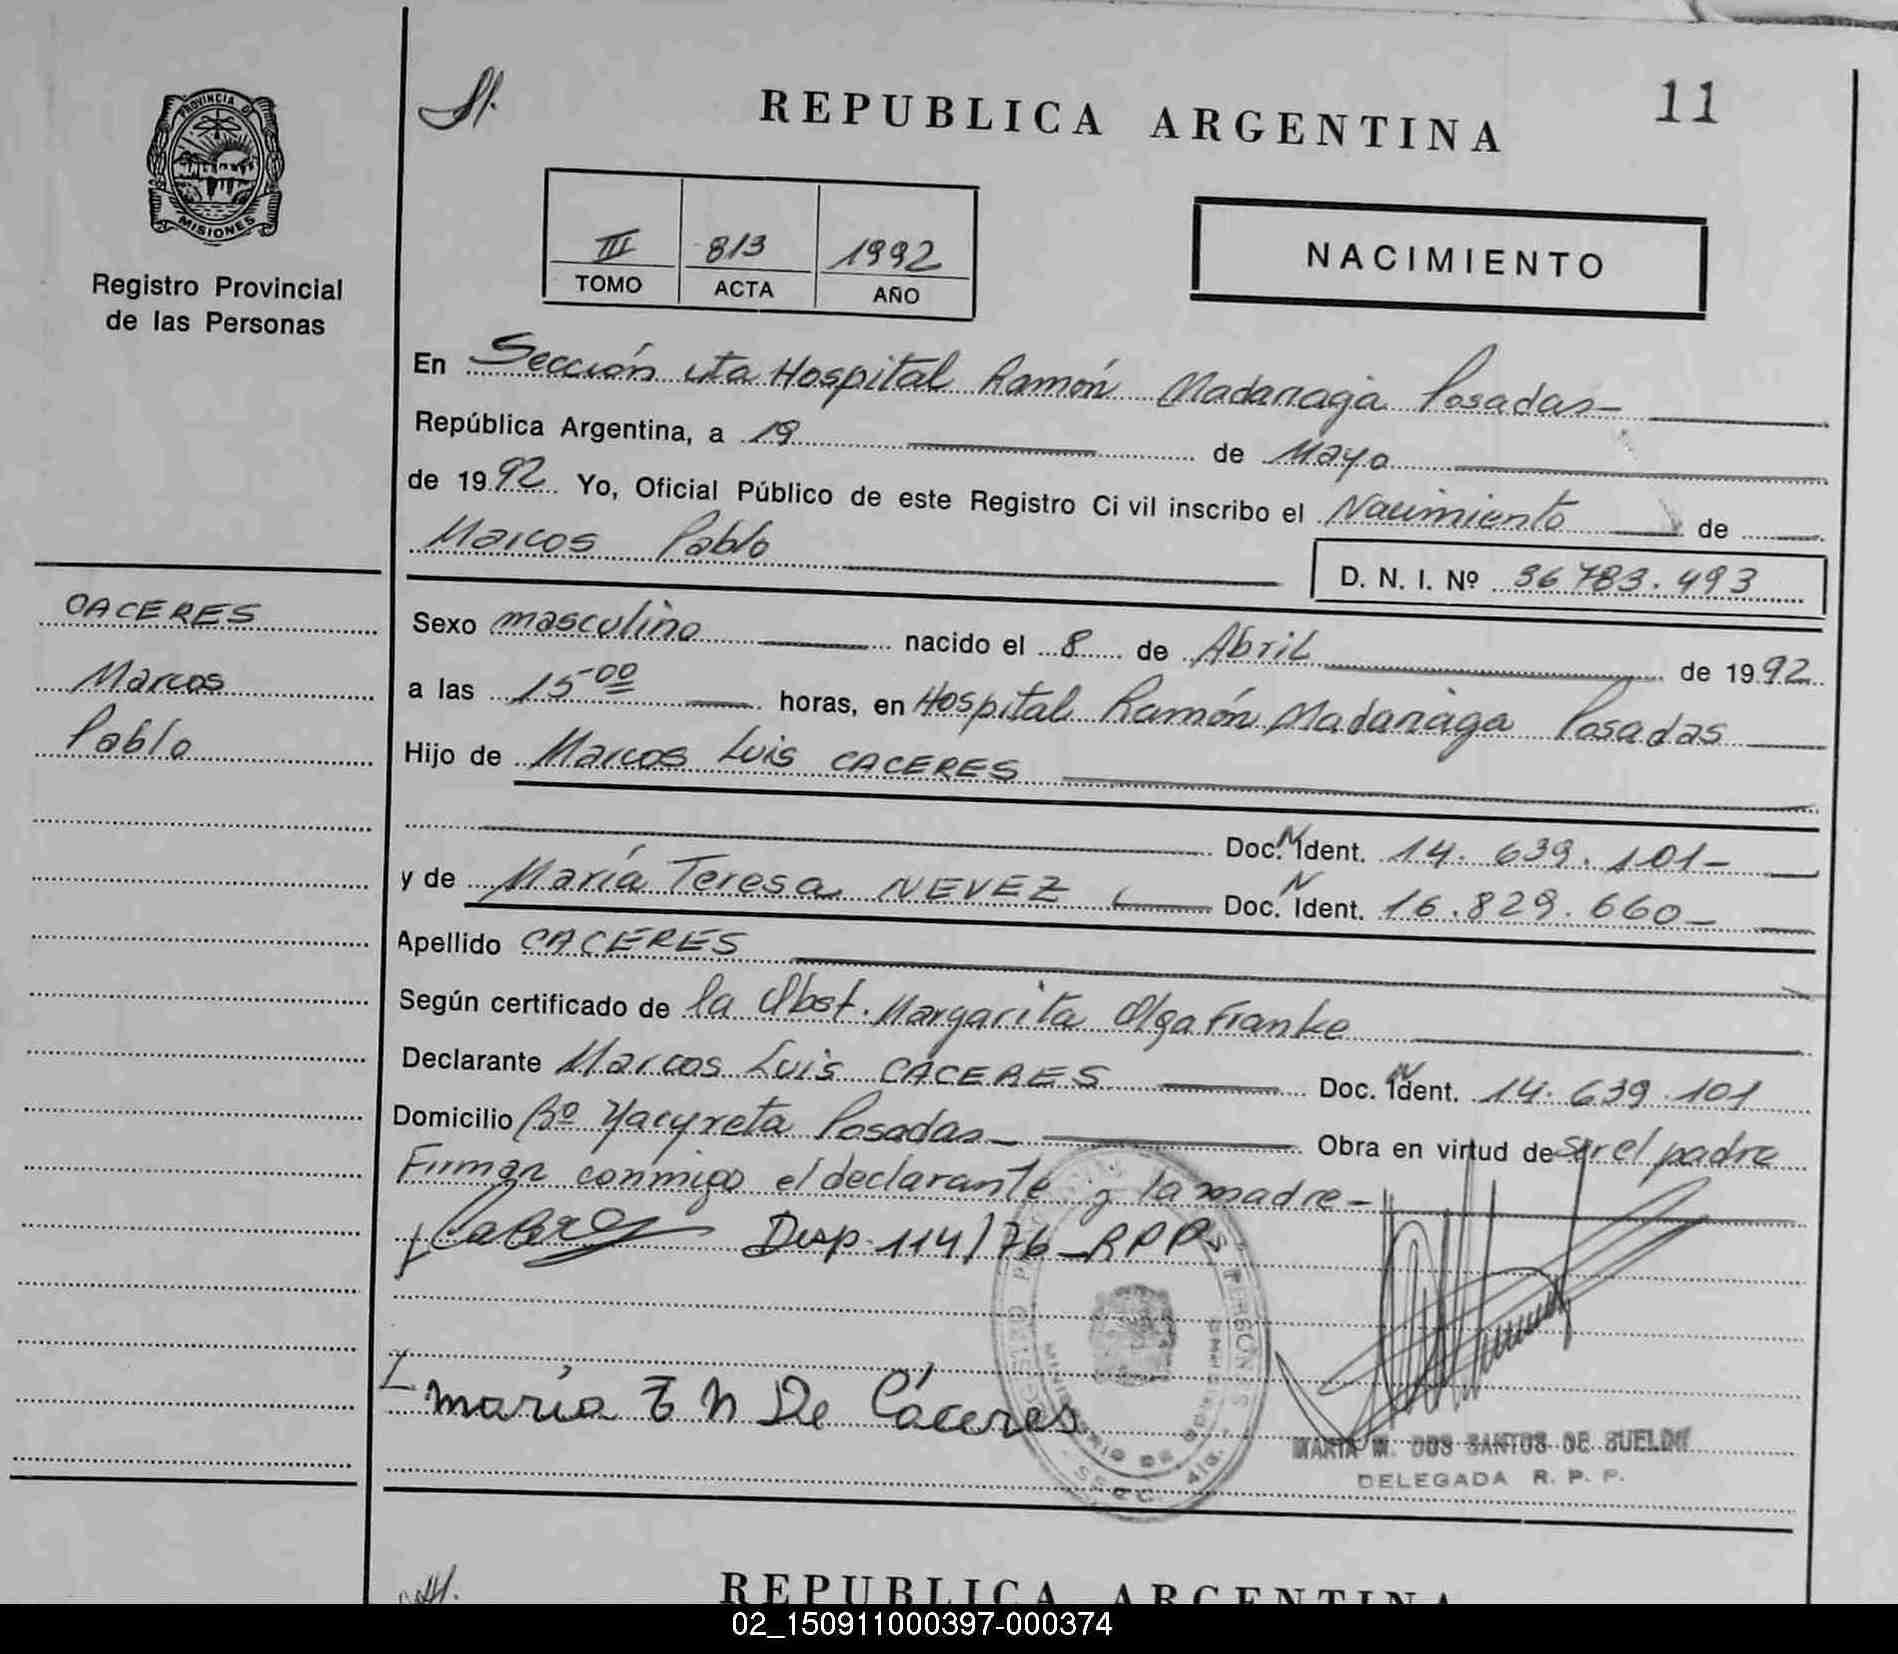 PROVINCIA DE
MISIONES
Registro Provincial
de las Personas
CACERES
Marcos
Pablo
REPUBLICA ARGENTINA
11
III 813 1992
TOMO ACTA AÑO
NACIMIENTO
En Sección 4ta Hospital Ramón Madariaga Posadas-
República Argentina, a 19 de Mayo
de 1992 Yo, Oficial Público de este Registro Ci vil inscribo el Nacimiento de
Marcos Pablo
D. N. I. Nº 36783.493
Sexo masculino nacido el 8 de Abril de 1992
a las 15-00 horas, en Hospital Ramón Madariaga Posadas
Hijo de Marcos Luis CACERES
Doc. N Ident. 14.639.101-
y de María Teresa NEVEZ Doc. N Ident. 16.829.660-
Apellido CACERES
Según certificado de la Obst. Margarita Olga Franke
Declarante Marcos Luis CACERES Doc. N Ident. 14.639.101
Domicilio Bº Yacyreta Posadas- Obra en virtud de ser el padre
Firman conmigo el declarante y la madre-
Disp. 114/76-RPP
maría T N De Cáceres
MARIA M. DOS SANTOS DE SUELDO
DELEGADA R. P. P.
REPUBLICA ARGENTINA
02_150911000397-000374